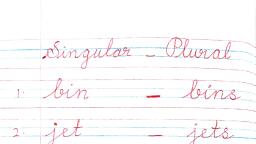 Singular - Plural
1. bin - bins
2. jet - jets